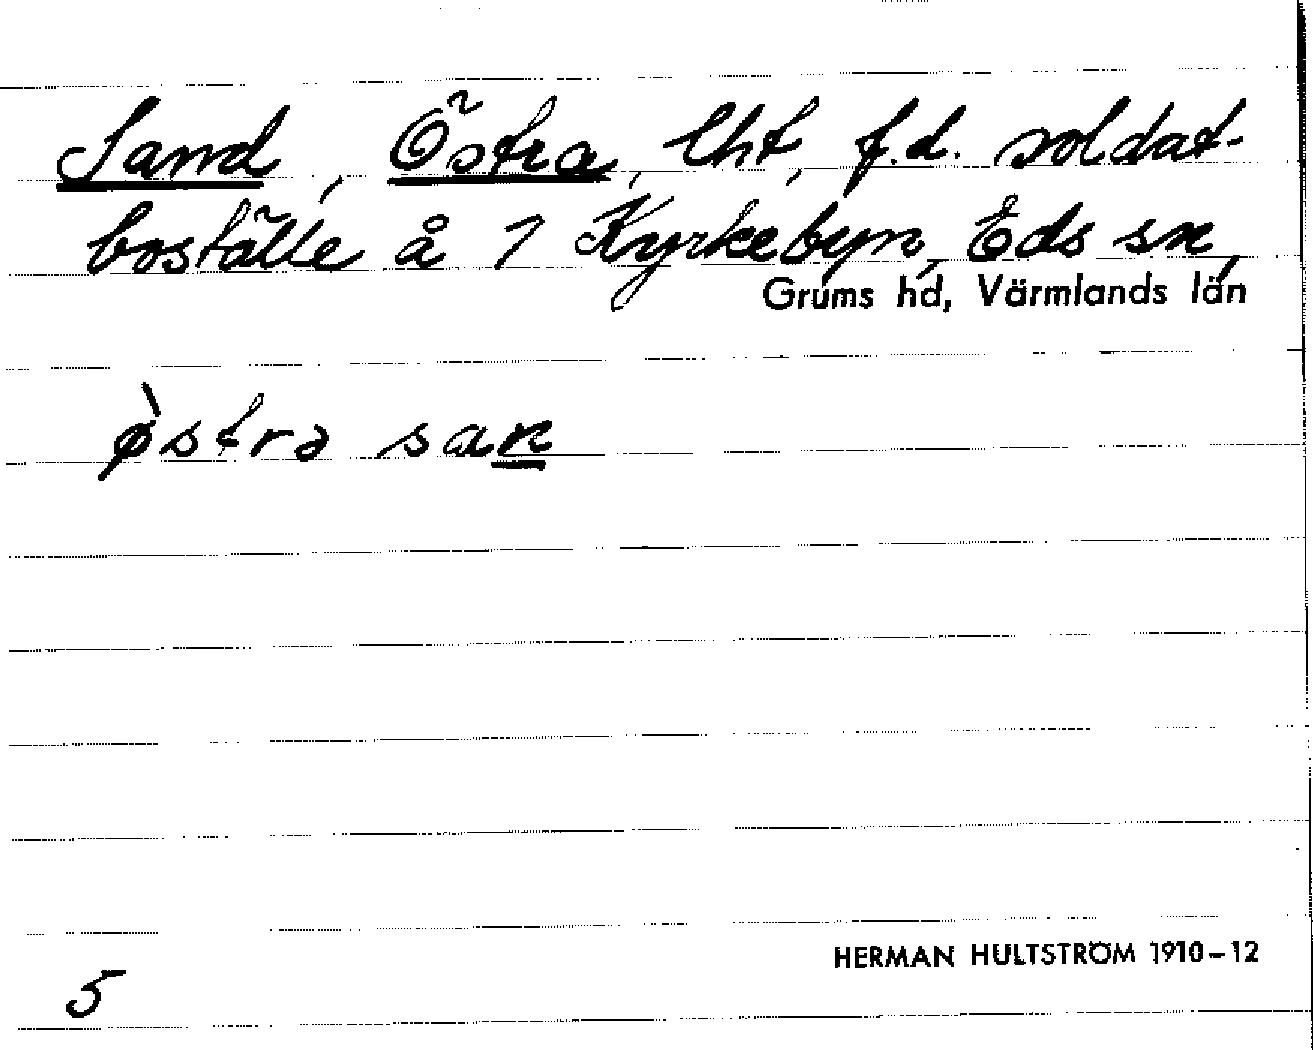 Sand, Östra, lht, f.d. soldat-
boställe å 1 Kyrkebyn, Eds sn,
Grums hd, Värmlands län
ø̀strə san
HERMAN HULTSTRÖM 1910–12
5